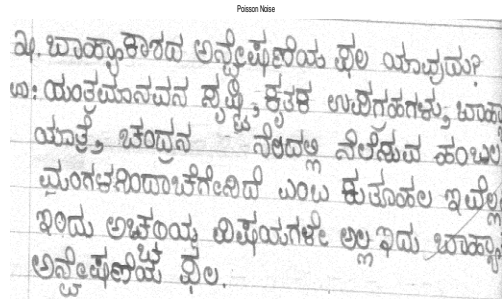 Poisson Noise
೩. ಬಾಹ್ಯಾಕಾಶದ ಅನ್ವೇಷಣೆಯ ಫಲ ಯಾವುದು?
ಉ: ಯಂತ್ರಮಾನವನ ಸೃಷ್ಟಿ, ಕೃತಕ ಉಪಗ್ರಹಗಳು, ಬಾಹ್ಯ
ಯಾತ್ರೆ, ಚಂದ್ರನ ನೆಲದಲ್ಲಿ ನೆಲೆಸುವ ಹಂಬಲ
ಮಂಗಳನಿಂದಾಚೆಗೇನಿದೆ ಎಂಬ ಕುತೂಹಲ ಇವೆಲ್ಲ
ಇಂದು ಅಚ್ಚರಿಯ ವಿಷಯಗಳೇ ಅಲ್ಲ ಇದು ಬಾಹ್ಯಾ
ಅನ್ವೇಷಣೆಯ ಫಲ.